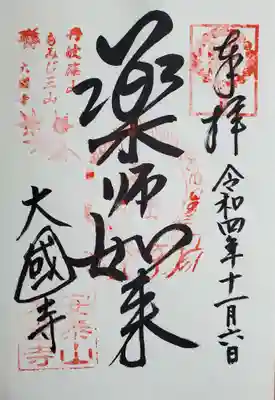 奉拝
令和四年十一月六日
薬師如来
丹波篠山
もみじ三山
大國寺
大國寺